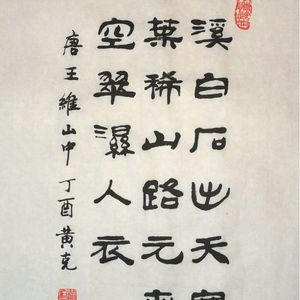 溪白石出天寒
葉稀山路元
空翠濕人衣
唐王維山中丁酉黃克